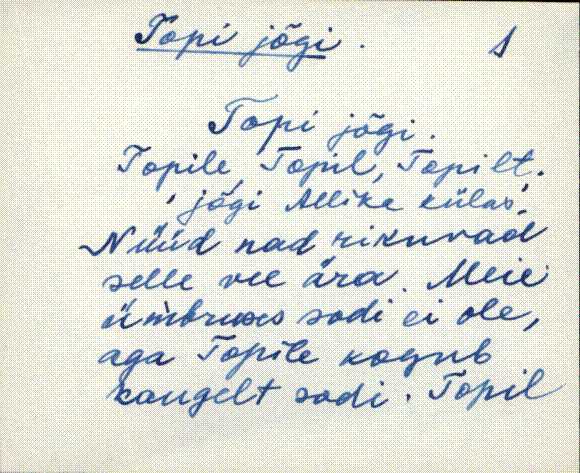 Topi jõgi. 1
Topi jõgi.
Topile, Topil, Topilt.
, jõgi Allika külas,
Nüüd nad rikuvad
selle vee ära. Meie
ümbruses sodi ei ole,
aga Topile kogub
kaugelt sodi. Topil